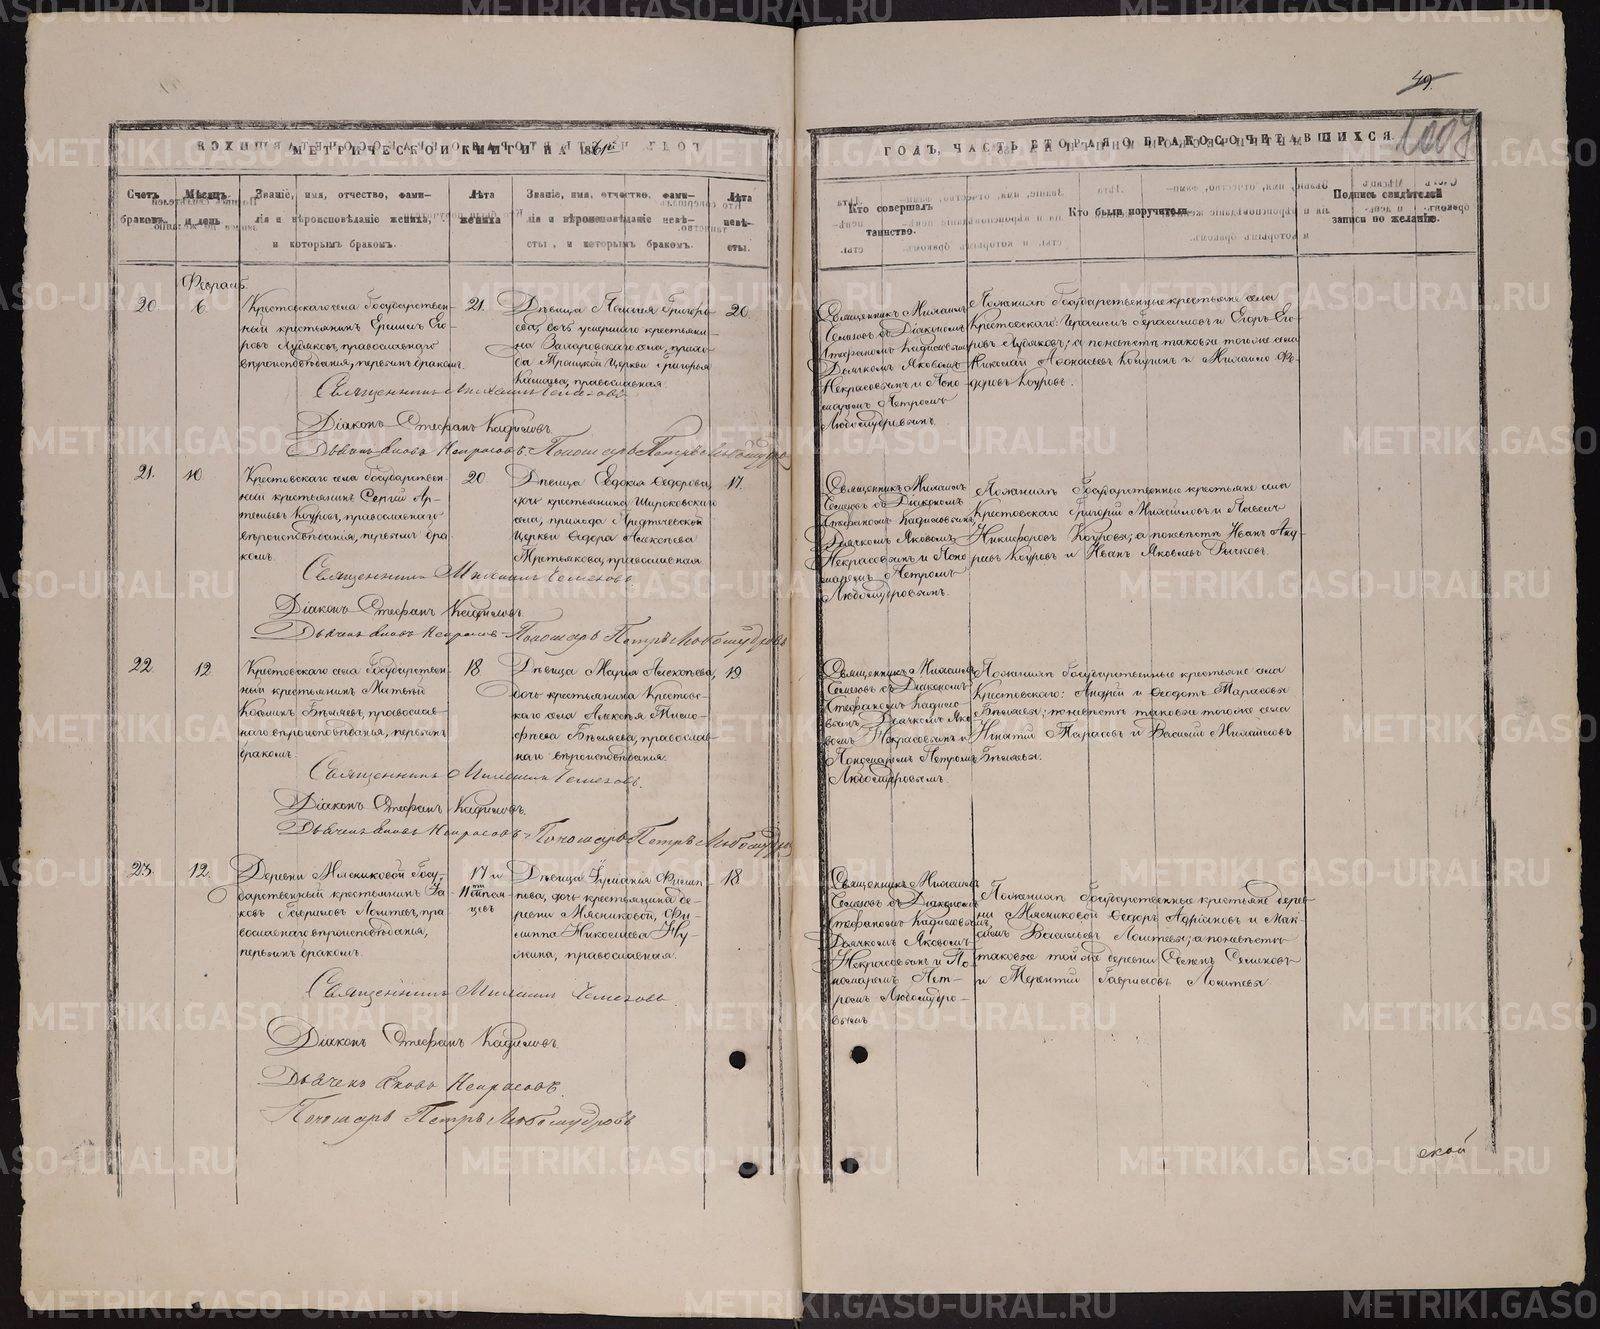 49.
1007
МЕТРИЧЕСКОЙ КНИГИ НА 1861й
ГОДЪ, ЧАСТЬ ВТОРАЯ О БРАКОСОЧЕТАВШИХСЯ.
Счетъ браковъ.
Мѣсяцъ и день
Званіе, имя, отчество, фами-
лія и вѣроисповѣданіе жениха,
и которымъ бракомъ.
Лѣта жениха
Званіе, имя, отчество, фами-
лія и вѣроисповѣданіе невѣ-
сты, и которымъ бракомъ.
Лѣта невѣ-
сты.
Кто совершалъ
таинство.
Кто были поручители
Подпись свидѣтелей
записи по желанію.
Февраль
20.
6
Крестовскаго села Государствен-
ный крестьянинъ Ефимъ Его-
ровъ православнаго
вѣроисповѣданія, первымъ бракомъ.
21.
Дѣвица Пелагія Григорь-
ева, дочь умершаго крестьяни-
на села, прихо-
да Троицкой Церкви Григорья
православная.
20
Священникъ Михаилъ
съ Діакономъ
Стефаномъ Кадиловымъ
Дьячкомъ Яковомъ
Некрасовымъ и Поно-
маремъ Петромъ
Любомудровымъ.
По женихѣ Государственные крестьяне села
Крестовскаго: Герасимъ Герасимовъ и Егоръ Его-
ровъ а по невѣстѣ таковые того же села
Николай и Михаило Ѳе-
доровъ Коуровъ.
Священникъ Михаилъ
Діаконъ Стефанъ Кадиловъ.
Дьячекъ Яковъ Некрасовъ. Пономарь Петръ Любомудро
21.
10
Крестовскаго села Государствен-
ный крестьянинъ Сергій Ар-
темьевъ Коуровъ, православнаго
вѣроисповѣданія, первымъ бра
комъ.
20
Дѣвица Евдокія Ѳедорова,
дочь крестьянина Широковскаго
села, прихода Предтечевской
Церкви Ѳедора Алексѣева
Третьякова, православная
17.
Священникъ Михаилъ
съ Діакономъ
Стефаномъ Кадиловымъ,
Дьячкомъ Яковомъ
Некрасовымъ и Поно
маремъ Петромъ
Любомудровымъ.
По женихѣ Государственные крестьяне села
Крестовскаго Григорій Михайловъ и Павелъ
Никифоровъ Коуровы; а по невѣстѣ Иванъ
Коуровъ и Иванъ Яковлевъ Рычковъ.
Священникъ Михаилъ
Діаконъ Стефанъ Кадиловъ.
Дьячекъ Яковъ Некрасовъ Пономарь Петръ Любомудровъ
22
12.
Крестовскаго села Государствен-
ный крестьянинъ Матвѣй
Козминъ Бѣляевъ, православ-
наго вѣроисповѣданія, первымъ
бракомъ.
18
Дѣвица Марія Алексѣева,
дочь крестьянина Крестовс-
каго села Алексѣя Тимо-
фѣева Бѣляева, православ-
наго вѣроисповѣданія.
19
Священникъ Михаилъ
съ Діакономъ
Стефаномъ Кадило-
вымъ Дьячкомъ Яко
вомъ Некрасовымъ и
Пономаремъ Петромъ
Любомудровымъ.
По женихѣ Государственные крестьяне села
Крестовскаго: Андрей и Ѳедотъ Тарасовы
Бѣляевы; по невѣстѣ таковые того же села
Игнатій Тарасовъ и Василій Михайловъ
Бѣляевы.
Священникъ Михаилъ
Діаконъ Стефанъ Кадиловъ.
Дьячекъ Яковъ Некрасовъ. Пономарь Петръ Любомудро
23.
12.
Деревни Мясниковой Госу-
дарственный крестьянинъ Я-
ковъ Гавриловъ пра
вославнаго вѣроисповѣданія,
первымъ бракомъ.
17 и
11 ти мѣся
цевъ
Дѣвица Филип-
пова, дочь крестьянина де-
ревни Мясниковой, Фи-
липпа православная.
18
Священникъ Михаилъ
съ Діакономъ
Стефаномъ Кадиловымъ,
Дьячкомъ Яковомъ
Некрасовымъ и По-
номаремъ Пет-
ромъ Любомудро-
вымъ
По женихѣ Государственные крестьяне дерев
ни Мясниковой Ѳедоръ Адріановъ и Мак-
симъ Васильевъ а по невѣстѣ
таковые той же деревни Семенъ Семеновъ
и Терентій Гавриловъ
Священникъ Михаилъ
Діаконъ Стефанъ Кадиловъ.
Дьячекъ Яковъ Некрасовъ.
Пономарь Петръ Любомудровъ
ской
METRIKI.GASO-URAL.RU